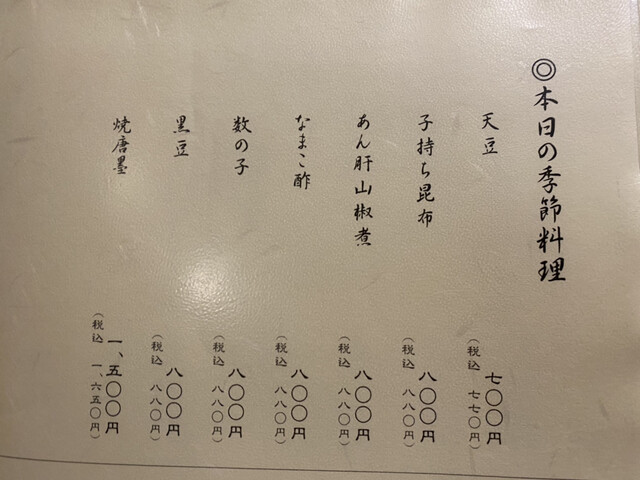 ◎本日の季節料理
天豆
七〇〇円
（税込 七七〇円）
子持ち昆布
八〇〇円
（税込 八八〇円）
あん肝山椒煮
八〇〇円
（税込 八八〇円）
なまこ酢
八〇〇円
（税込 八八〇円）
数の子
八〇〇円
（税込 八八〇円）
黒豆
八〇〇円
（税込 八八〇円）
焼唐墨
一、五〇〇円
（税込 一、六五〇円）